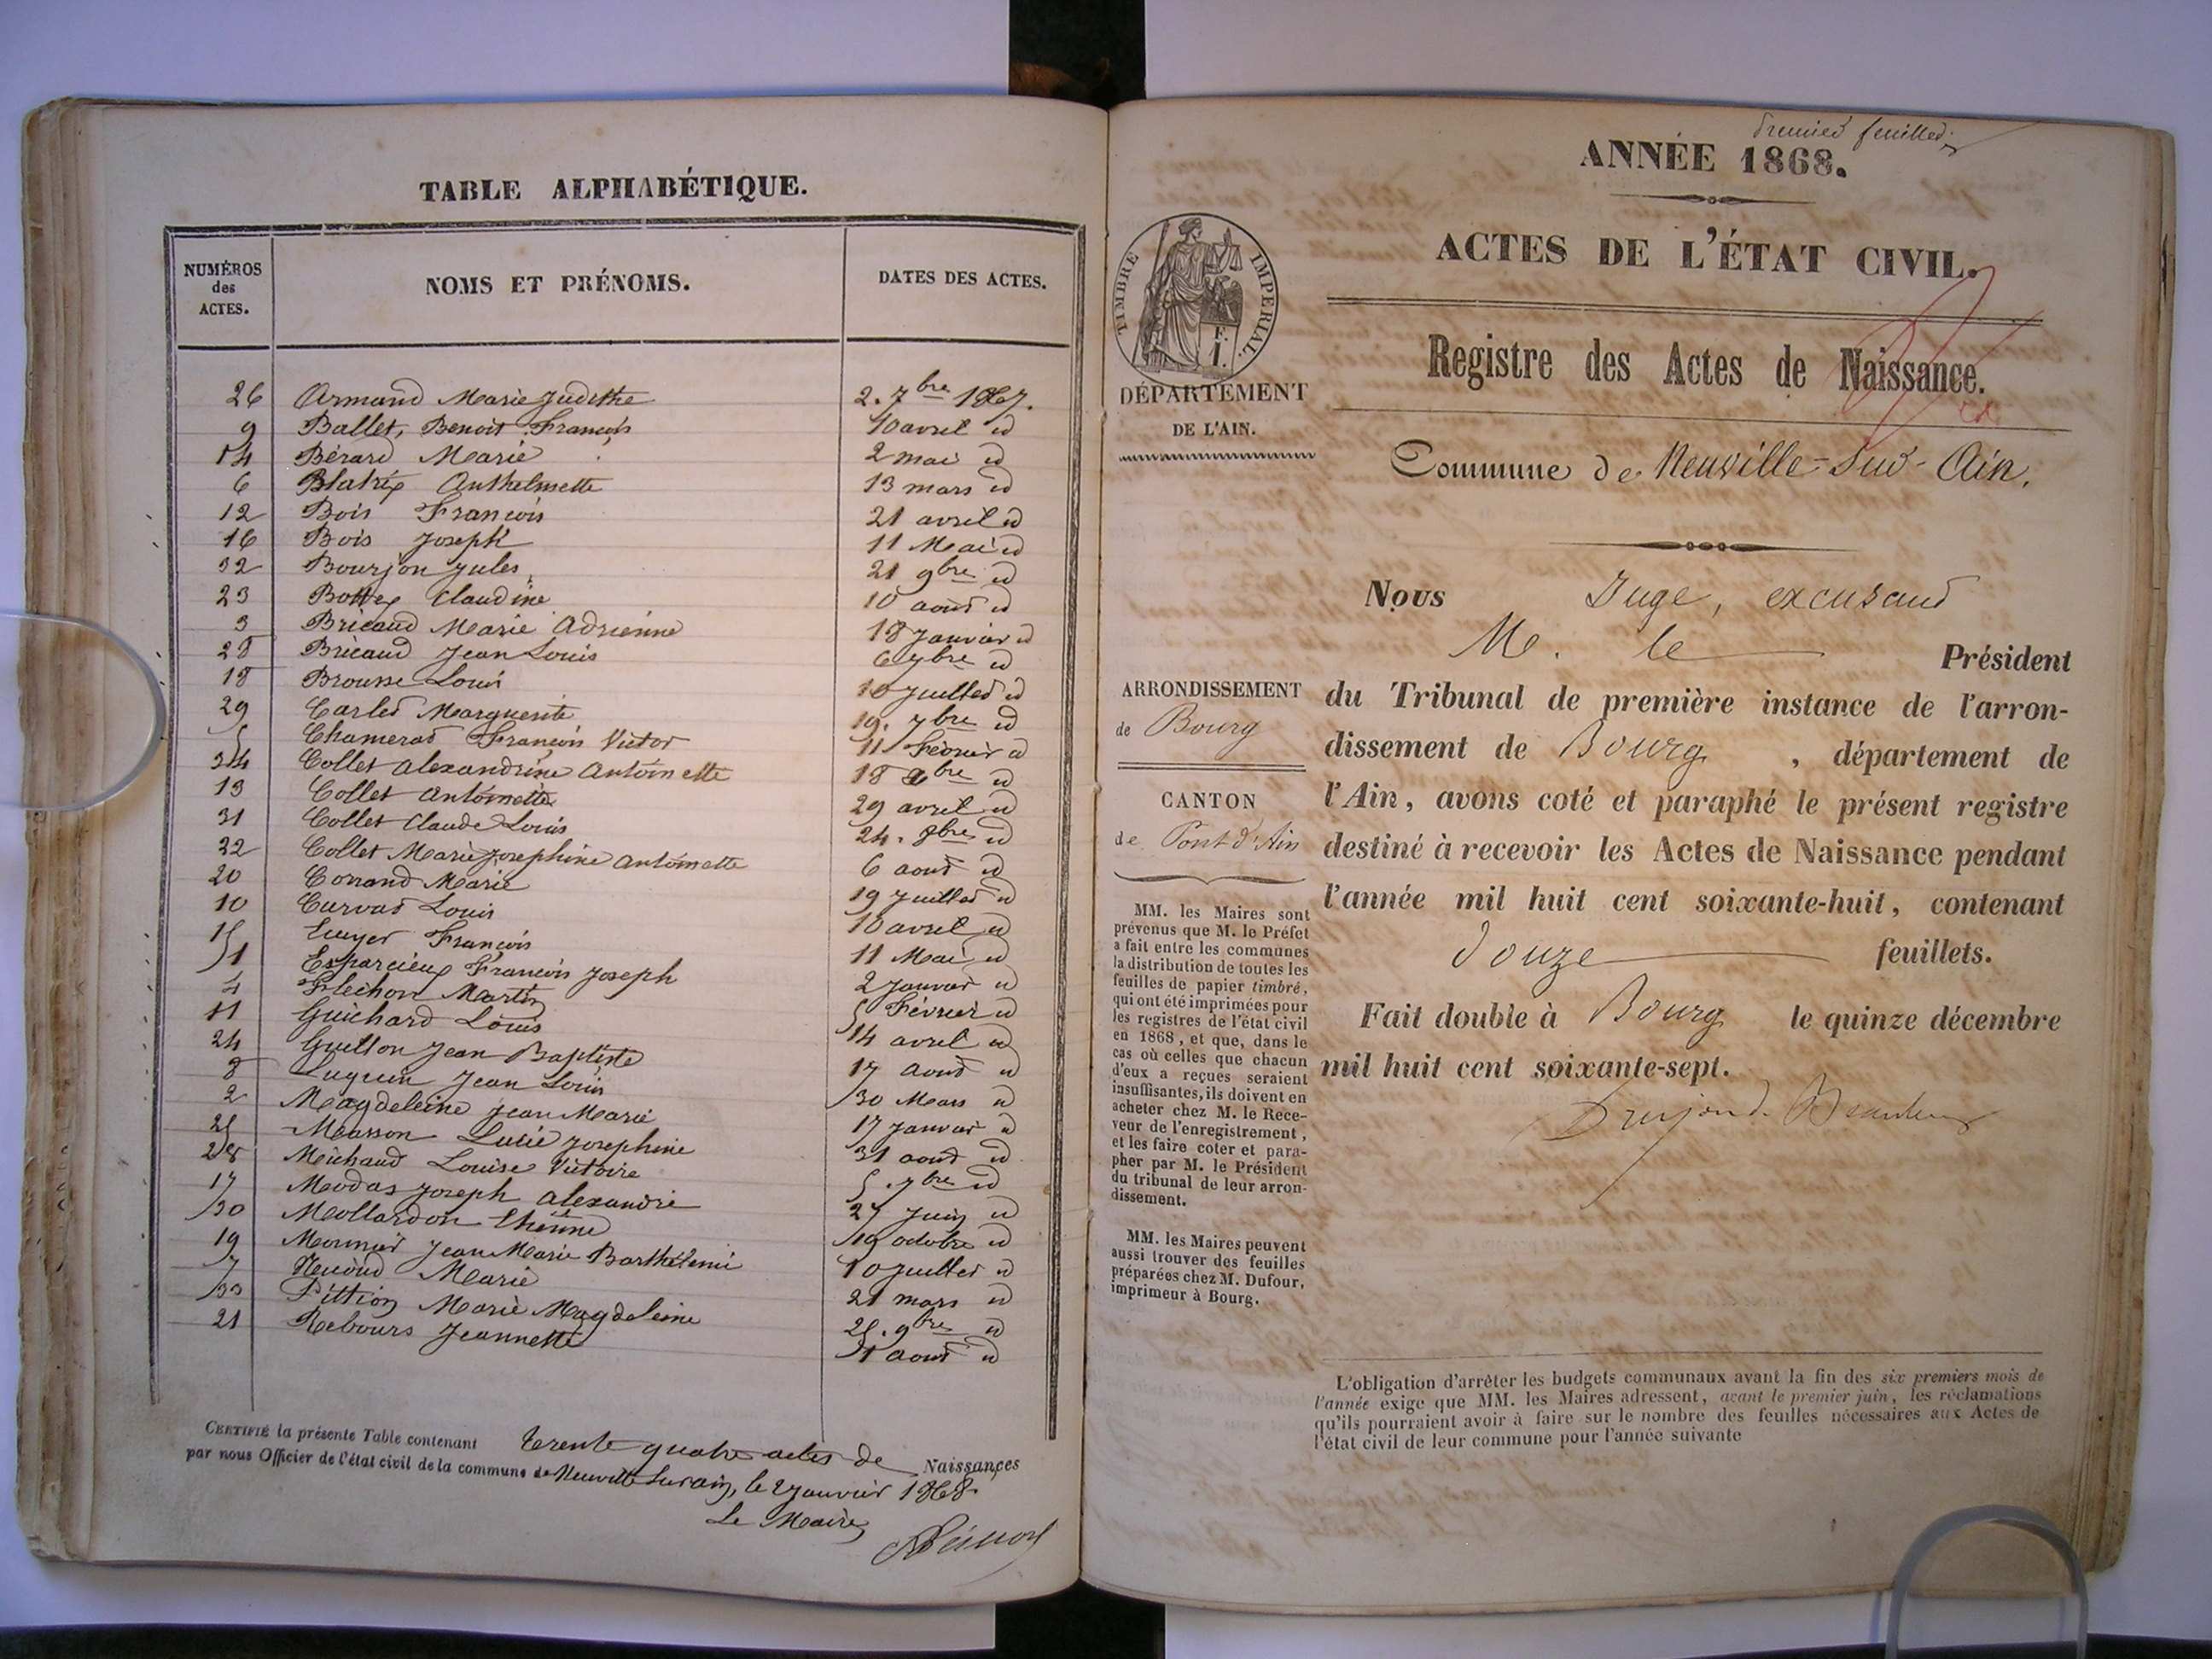 TABLE ALPHABÉTIQUE.
NUMÉROS des ACTES. NOMS ET PRÉNOMS. DATES DES ACTES.
26 Armand Marie Judithe 2. 7bre 1867.
9 Ballet, Benoit François 10 avril id
14 Bérard Marie 2 mai id
6 Blatrix Anthelmette 13 mars id
12 Bois François 21 avril id
16 Bois Joseph 11 Mai id
32 Bourjon Jules 21 9bre id
23 Bottex Claudine 10 août id
3 Bricaud Marie Adrienne 18 Janvier id
28 Bricaud Jean Louis 6 7bre id
18 Brousse Louis 10 Juillet id
29 Carlet Marguerite 19. 7bre id
5 Chamerat François Victor 11 Février id
34 Collet Alexandrine Antoinette 18 Xbre id
13 Collet Antoinette 29 avril id
31 Collet Claude Louis 24. 8bre id
22 Collet Marie Josephine Antoinette 6 aout id
20 Conand Marie 19 Juillet id
10 Curvat Louis 10 avril id
15 François 11 Mai id
1 Esparcieux François Joseph 2 Janvier id
4 Flechon Martin 5 Février id
11 Guichard Louis 14 avril id
24 Guillon Jean Baptiste 17 Aout id
8 Luquin Jean Louis 30 Mars id
2 Magdeleine Jean Marie 17 Janvier id
25 Masson Lucie Josephine 31 aout id
Michaud Louise Victoire 5. 7bre id
17 Modas Joseph Alexandre 27 Juin id
30 Mollardon Etienne 19 octobre id
19 Monnier Jean Marie Barthélemi 10 Juillet id
7 Marie 21 mars id
33 Pittion Marie Magdeleine 25. 9bre id
21 Rebours Jeannette 1 aout id
CERTIFIÉ la présente Table contenant trente quatre actes de Naissances
par nous Officier de l'état civil de la commune de Neuville sur ain, le 2 Janvier 1868.
Le Maire
premier feuillet
ANNÉE 1868.
ACTES DE L'ÉTAT CIVIL.
Registre des Actes de Naissance.
Commune de Neuville-Sur-Ain.
TIMBRE IMPÉRIAL.
DÉPARTEMENT
DE L'AIN.
ARRONDISSEMENT
de Bourg
CANTON
de Pont d'Ain
MM. les Maires sont
prévenus que M. le Préfet
a fait entre les communes
la distribution de toutes les
feuilles de papier timbré,
qui ont été imprimées pour
les registres de l'état civil
en 1868, et que, dans le
cas où celles que chacun
d'eux a reçues seraient
insuffisantes, ils doivent en
acheter chez M. le Rece-
veur de l'enregistrement,
et les faire coter et para-
pher par M. le Président
du tribunal de leur arron-
dissement.
MM. les Maires peuvent
aussi trouver des feuilles
préparées chez M. Dufour,
imprimeur à Bourg.
Nous Juge, excusant
M. le Président
du Tribunal de première instance de l'arron-
dissement de Bourg, département de
l'Ain, avons coté et paraphé le présent registre
destiné à recevoir les Actes de Naissance pendant
l'année mil huit cent soixante-huit, contenant
douze feuillets.
Fait double à Bourg le quinze décembre
mil huit cent soixante-sept.
L'obligation d'arrêter les budgets communaux avant la fin des six premiers mois de
l'année exige que MM. les Maires adressent, avant le premier juin, les réclamations
qu'ils pourraient avoir à faire sur le nombre des feuilles nécessaires aux Actes de
l'état civil de leur commune pour l'année suivante